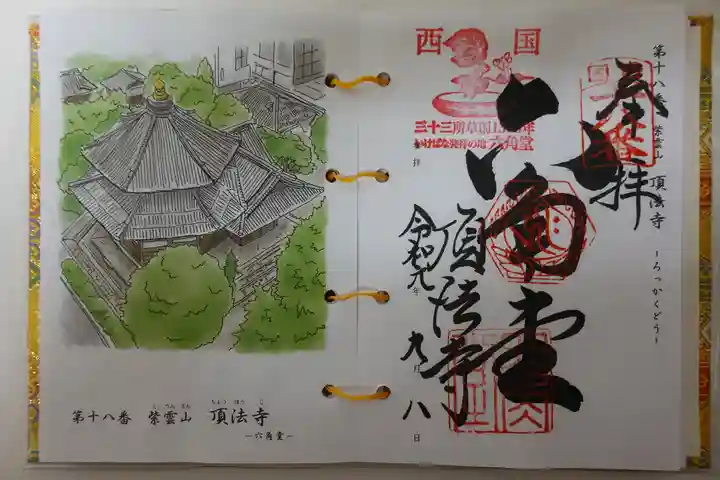 第十八番 紫雲山 頂法寺
し うん ざん ちょう ほう じ
―六角堂―
第十八番 紫雲山 頂法寺 ―ろっかくどう―
奉拝
西国
三十三所草創1300年
いけばな発祥の地 六角堂
六角堂
頂法寺
令和元年九月八日